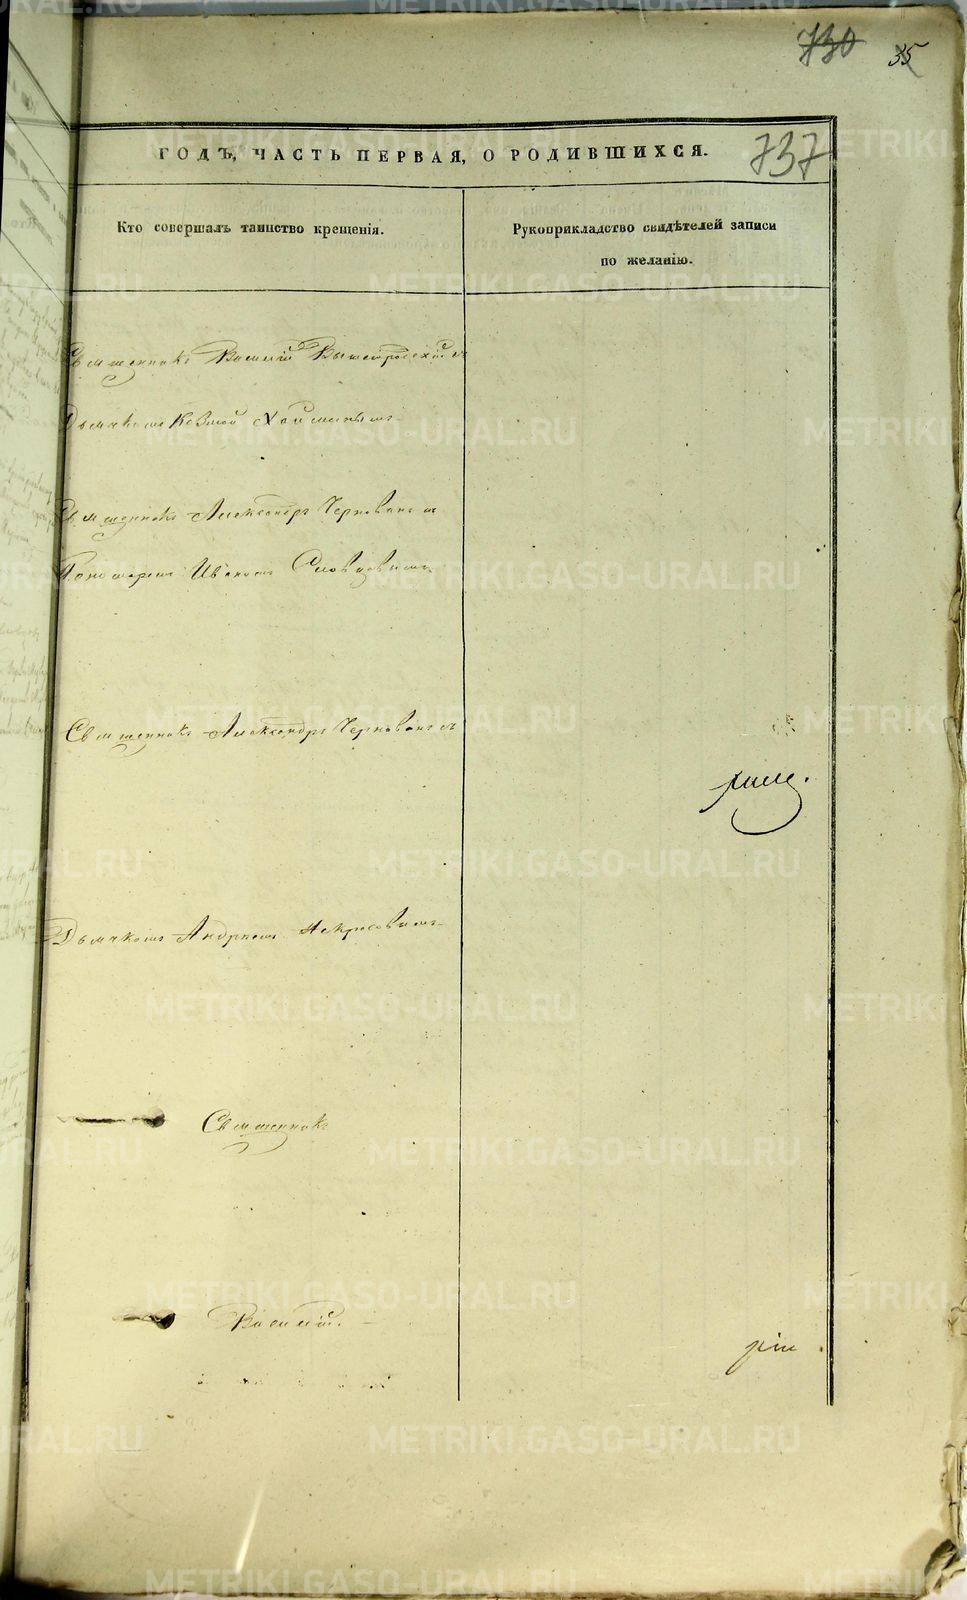 730 35
ГОДЪ, ЧАСТЬ ПЕРВАЯ, О РОДИВШИХСЯ. 737
Кто совершалъ таинство крещенія.
Рукоприкладство свидѣтелей записи
по желанію.
Священникъ Василій
Дьячкомъ Козмой
Священникъ Александръ Чернованъ съ
Пономаремъ Иваномъ Словцовымъ
Священникъ Александръ Чернованъ съ
Дьячкомъ Андреемъ Некрасовымъ
Священникъ
Василій
METRIKI.GASO-URAL.RU